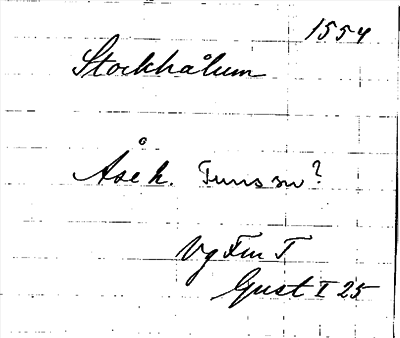 1554
Stockhålum
Åse h. Tunsson?
Vg Fm T
Gust I 25